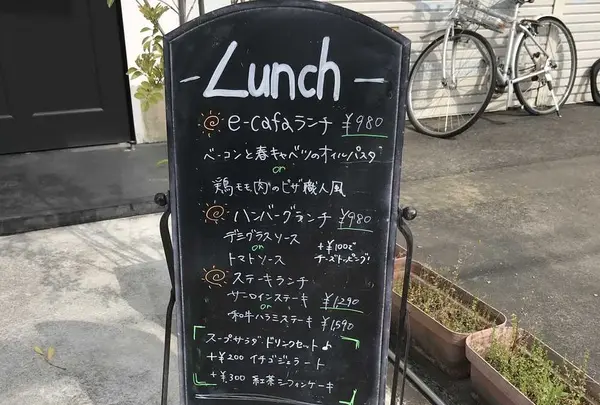 Lunch
e-cafeランチ ¥980
ベーコンと春キャベツのオイルパスタ
or
鶏モモ肉のピザ職人風
ハンバーグランチ ¥980
デミグラスソース
or
トマトソース
+¥100で
チーズトッピング!
ステーキランチ
サーロインステーキ ¥1,290
or
和牛ハラミステーキ ¥1,590
スープサラダ・ドリンクセット♪
+¥200 イチゴジェラート
+¥300 紅茶シフォンケーキ